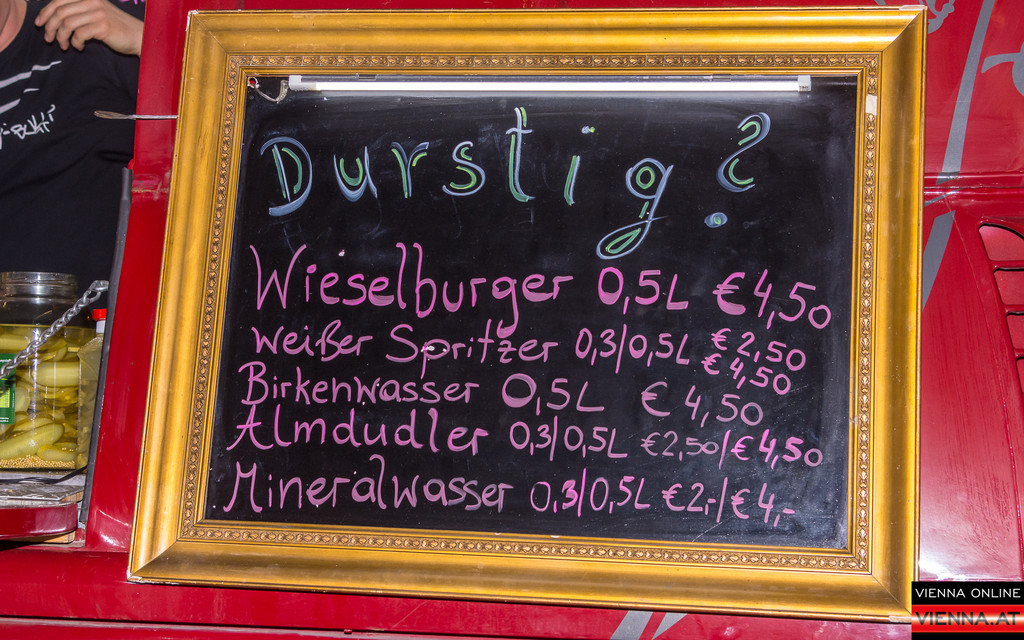 Durstig?
Wieselburger 0,5L €4,50
Weißer Spritzer 0,3/0,5L €2,50
€4,50
Birkenwasser 0,5L €4,50
Almdudler 0,3/0,5L €2,50/€4,50
Mineralwasser 0,3/0,5L €2,-/€4,-
VIENNA ONLINE
VIENNA.AT